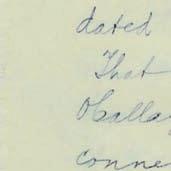 dated
That
O'Calla
conne